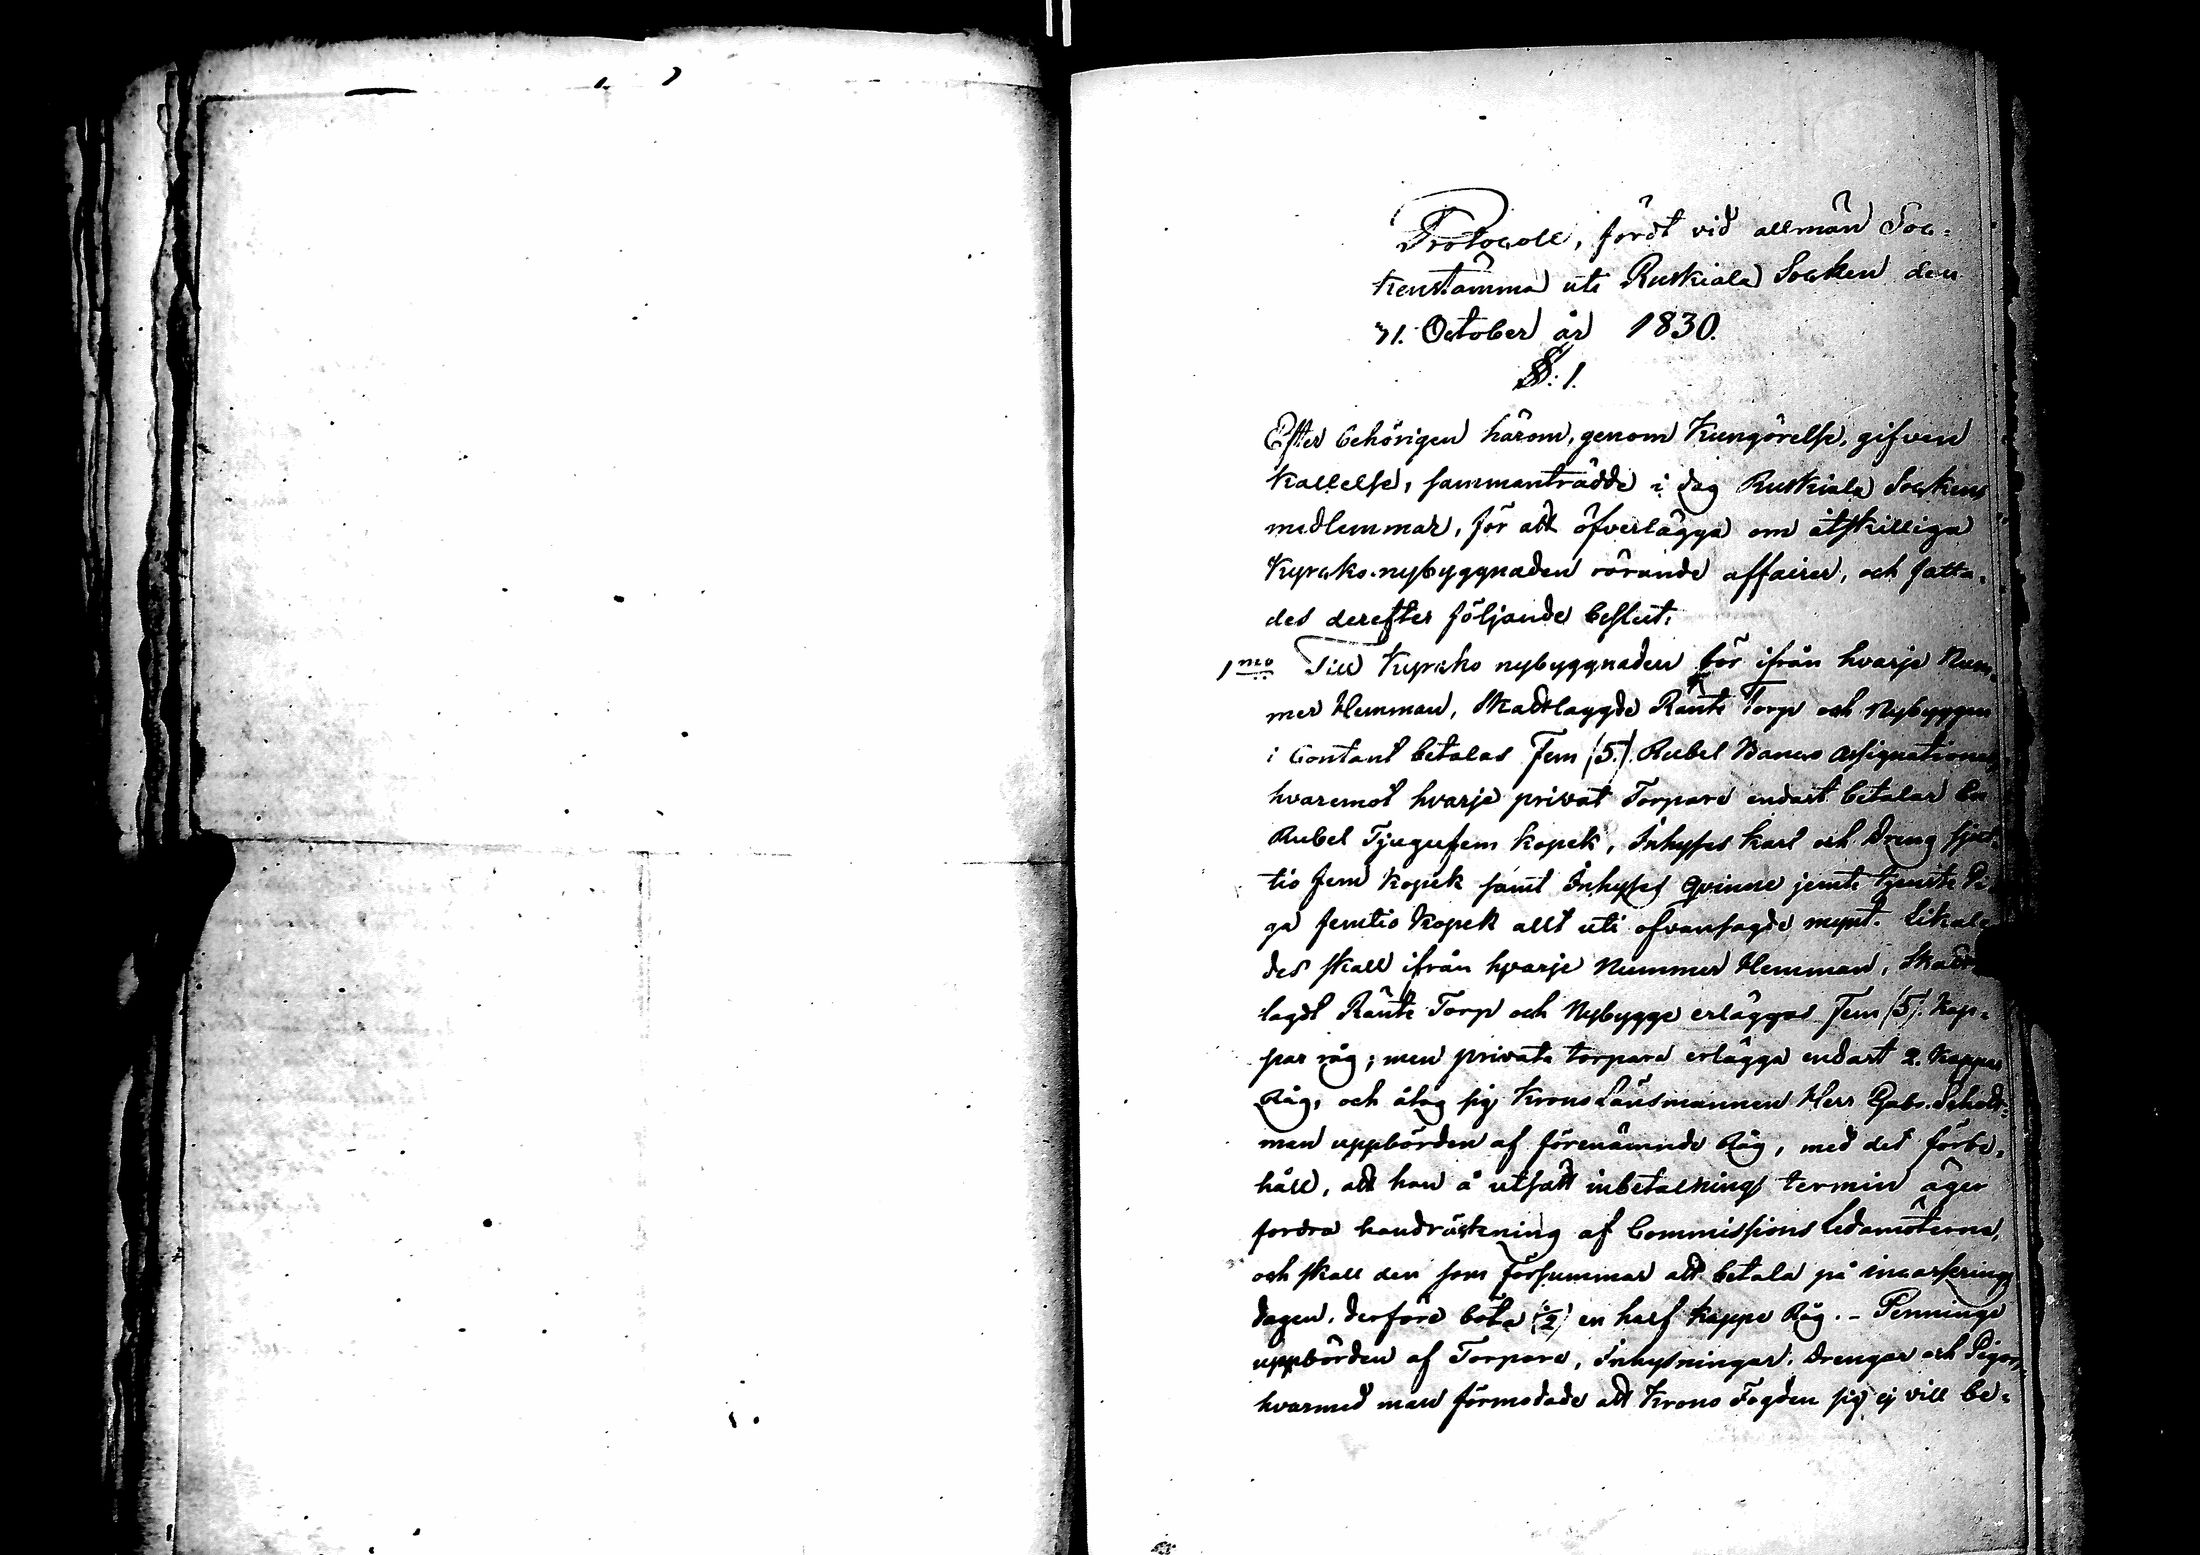 Protocoll, fördt vid allmän Soc-
kenstämma uti Ruskiala Socken den
31. October år 1830.
§: 1.
Efter behörigen härom, genom Kungörelse, gifven
kallelse, sammanträdde i dag Ruskiala Sockens
medlemmar, för att öfverlägga om åtskilliga
Kyrcko-nybyggnaden rörande affairer, och fatta-
des derefter följande beslut:
1mo Till Kyrcko nybyggnaden bör ifrån hvarje Num-
mer Hemman, Skattlaggde Ränte Torp och Nybyggen
i Contant betalas Fem (5.) Rubel Banco Assignationer,
hvaremot hvarje privat Torpare endast betalar En
Rubel Tjugufem kopek, Inhyses karl och Dreng sjut-
tio fem kopek samt Inhyses Qvinne jemte tjenste Pi-
ga femtio kopek allt uti ofvansagde mynt. Likale-
des skall ifrån hvarje Nummer Hemman, Skatt-
lagdt Ränte Torp och Nybygge erläggas Fem (5). Kap-
par råg; men privata torpare erlägga endast 2. Kappar
Råg, och åtog sig Krono Länsmannen Herr Gabr.
man uppbörden af förenämnde Råg, med det förbe-
håll, att han å utsatt inbetalnings termin äger
fordra handräckning af Commissions Ledamöterne,
och skall den som försummar att betala på incasserings
dagen, derföre böta (½) en half kappe Råg. - Penninge
uppbörden af Torpare, Inhysningar, Drengar och Pigor,
hvarmed man förmodade att Krono Fogden sig ej vill be-